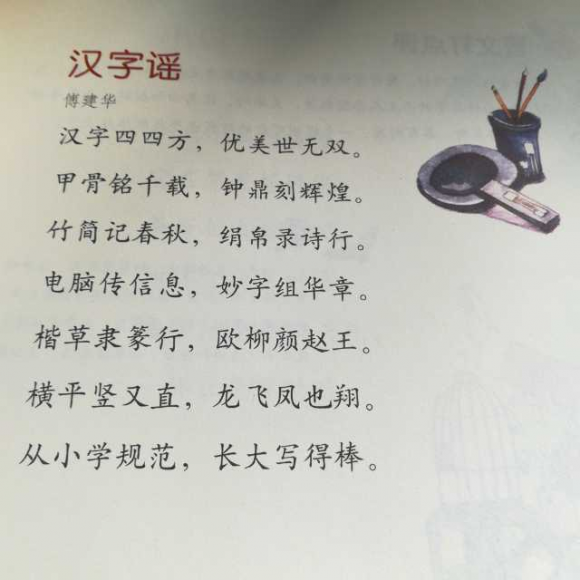 汉字谣
傅建华
汉字四四方，优美世无双。
甲骨铭千载，钟鼎刻辉煌。
竹简记春秋，绢帛录诗行。
电脑传信息，妙字组华章。
楷草隶篆行，欧柳颜赵王。
横平竖又直，龙飞凤也翔。
从小学规范，长大写得棒。